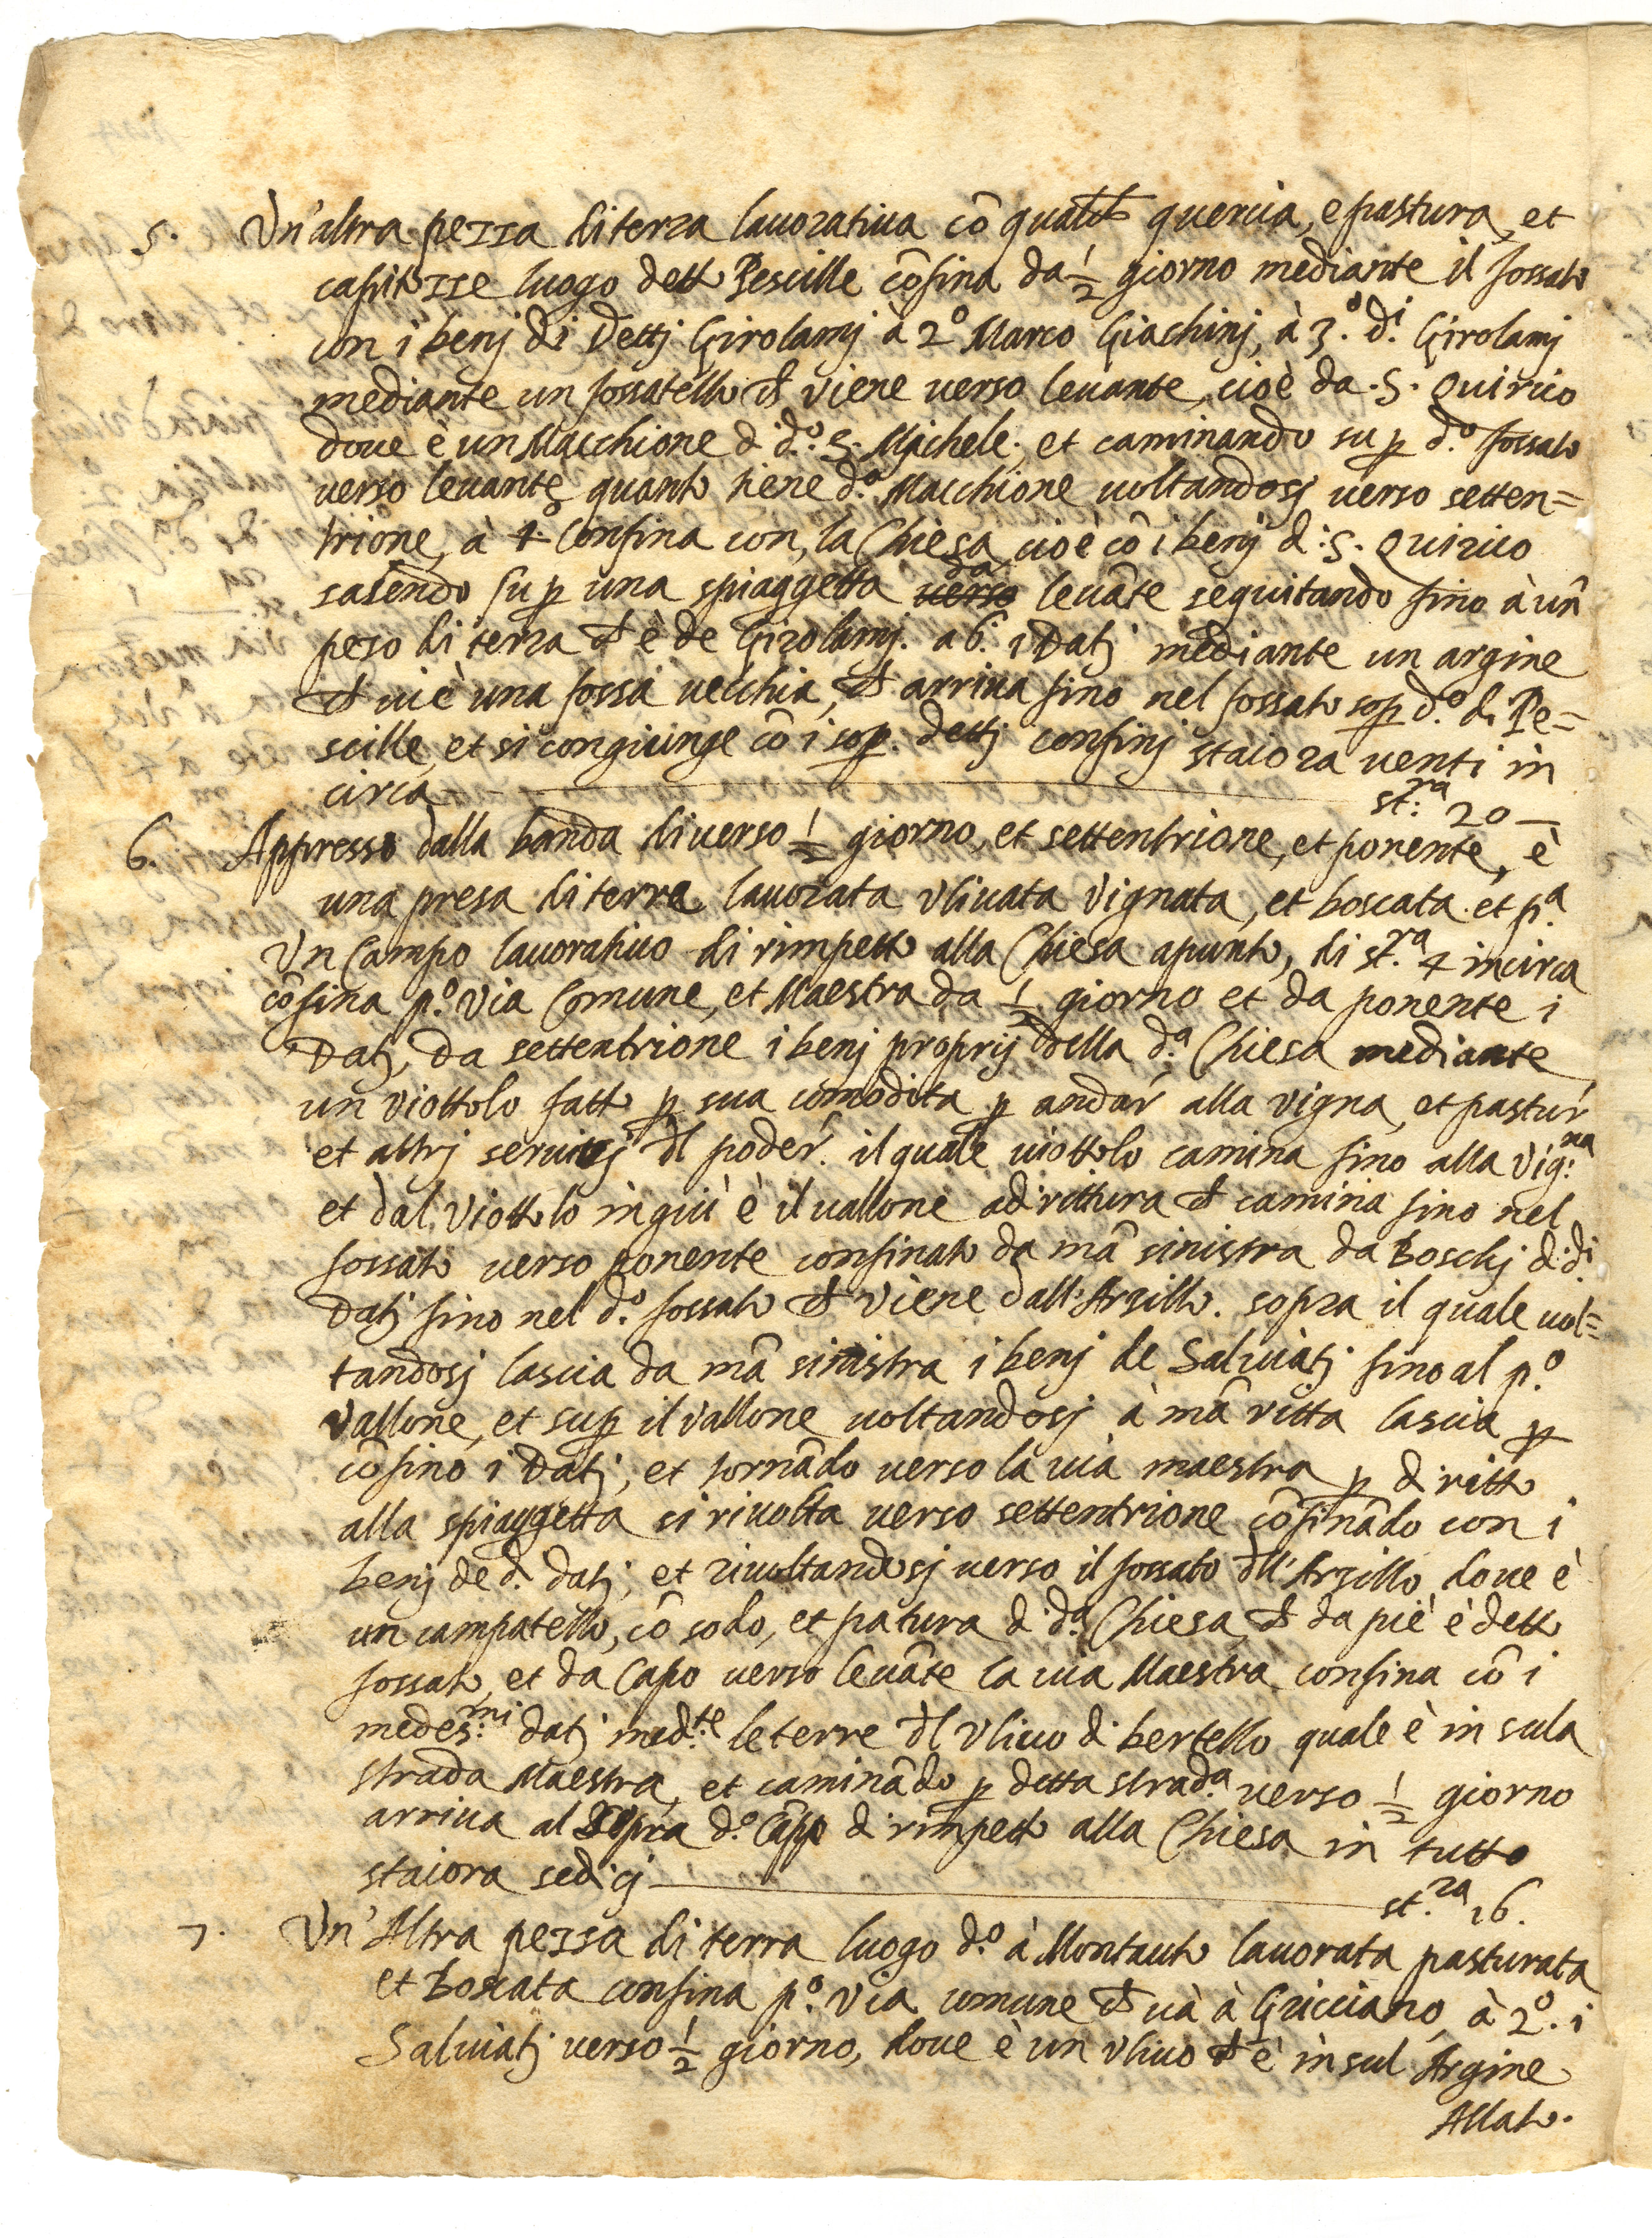 5. Un'altra pezza di terra lauoratiua cõ qualch quercia, e pastura, et
capitozze luogo detto Pescille cõfina da ½ giorno mediante il fossato
con i benj di dettj Girolamj à 2º Marco Giachinj, à 3.º d.i Girolamj
mediante un fossatello ch viene verso leuante, cioè da .S. Quirico
doue è un Macchione d d.º S. Michele. et caminando su p d.º fossato
verso leuante quanto tiene d.º Macchione uoltandosj verso setten=
trione, à 4.º Confina con, la Chiesa cioè cõ i benj d :S. Quirico
salendo su p una spiaggetta da leuãte seguitando sino à un
pezo di terra ch è de Girolamj. a 6. i Datj mediante un argine
ch ui è una fossa uecchia, ch arriua sino nel fossato sop d.º di Pe=
scille, et si congiunge cõ i sop. dettj confinj staiora uenti in
circa — st:ra 20 —
6. Appresso dalla banda di uerso ½ giorno, et settentrione, et ponente, è
una presa di terra lauorata Vliuata Vignata, et boscata. et p.a
Un Campo lauoratiuo di rimpetto alla Chiesa apunto, di st.ra 4 incirca
cõfina p.º Via Comune, et Maestra da ½ giorno et da ponente i
Datj, da settentrione i benj proprij della d.a Chiesa mediante
un viottolo fatto p sua comodita p andar alla vigna, et pastur
et altrj seruitj dl poder. il quale uiottolo camina sino alla Vig:na
et dal Viottolo ingiù è il uallone adirittura ch camina sino nel
fossato verso ponente confinato da mã sinistra da Boschj d: d.i
Datj sino nel d.º fossato ch viene dall'Arsillo. sopra il quale uol=
tandosj lascia da mã sinistra i benj de Saluiatj sino al p.º
Vallone, et su p il vallone uoltandosj à mã ritta lascia p
cõfino i Datj, et tornãdo uerso la uia maestra p diritto
alla spiaggetta si riuolta uerso settentrione cõfinãdo con i
benj de d. datj, et riuoltandosj uerso il fossato dll'Arsillo doue è
un campatello, cõ sodo, et patura d d.a Chiesa, ch da piè è detto
fossato, et da Capo verso leuãte la uia Maestra confina cõ i
medes:mi datj med.te le terre dl Vliuo di bertello quale è in sula
strada Maestra, et caminãdo p detta strada uerso ½ giorno
arriua al sopra d.º Cãpo d rimpetto alla Chiesa in tutto
staiora sedicj — st.ra 16.
7. Un'Altra pezza di terra luogo d.º à Montauto lauorata pasturata
et Boscata confina p.º Via comune ch uà à Gricciano, à 2º. i
Saluiatj uerso ½ giorno, doue è un vliuo ch è in sul Argine
Allato.